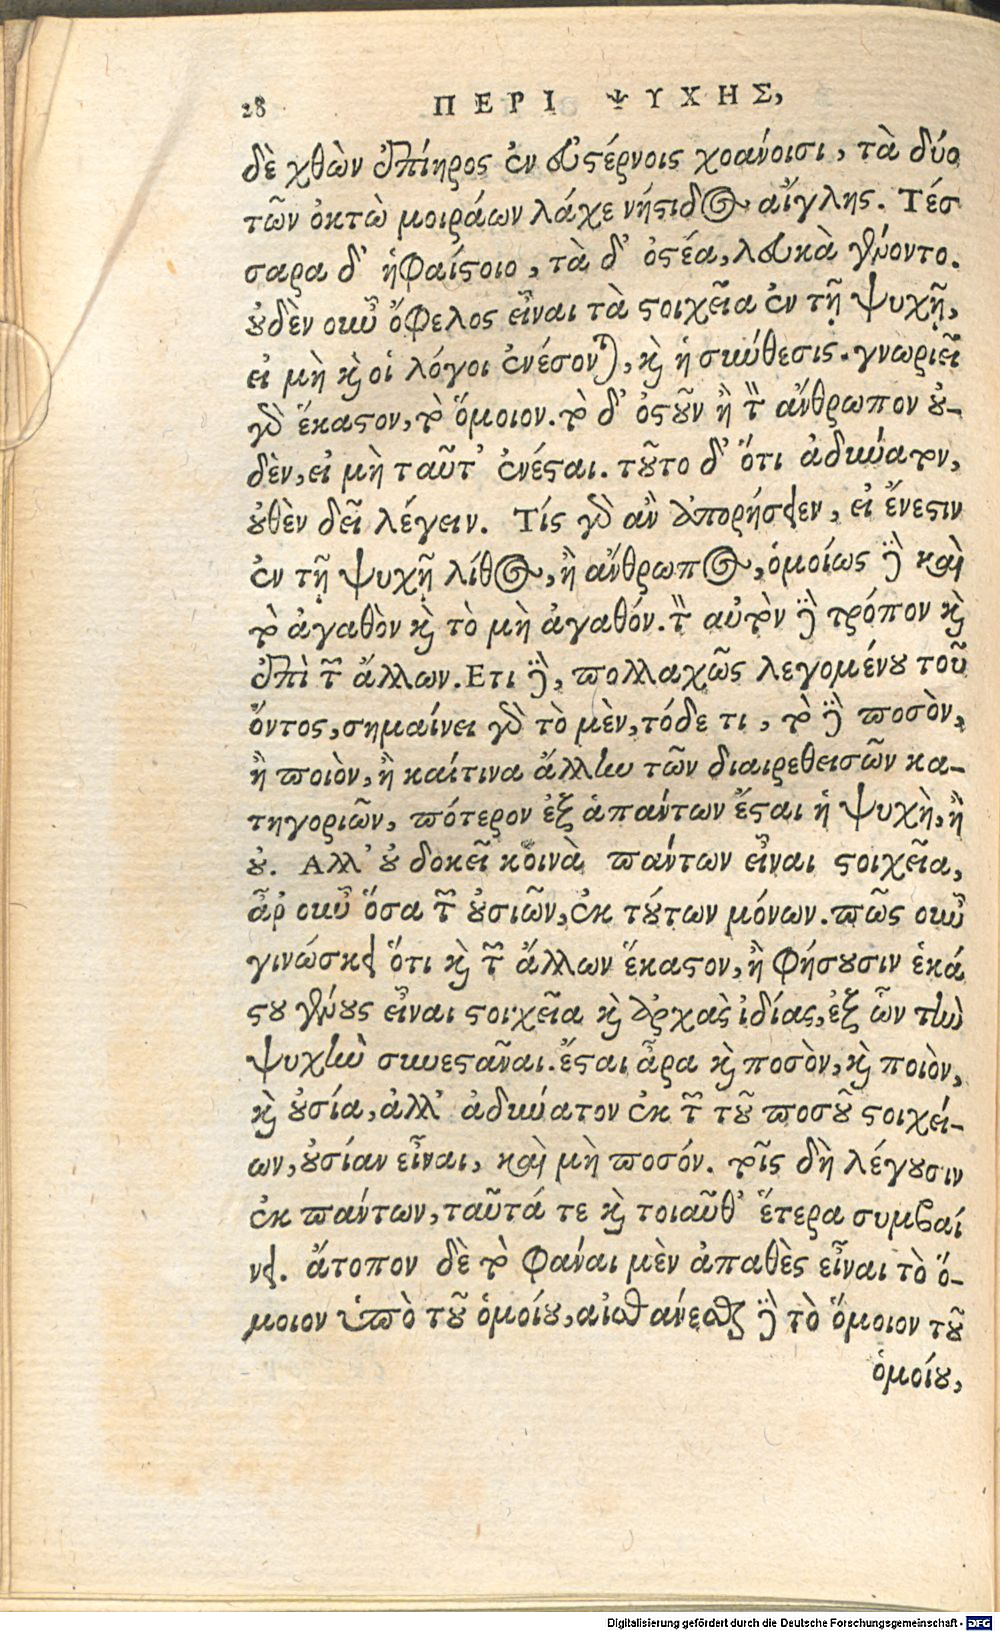 28 ΠΕΡΙ ΨΥΧΗΣ,
δὲ χθὼν ἐπίηρος ἐν εὐστέρνοις χοάνοισι, τὰ δύο
τῶν ὀκτὼ μοιράων λάχε νήστιδος αἴγλης. Τέσ
σαρα δ' ἡφαίστοιο, τὰ δ' ὀστέα, λευκὰ γένοντο.
οὐδὲν οὖν ὄφελος εἶναι τὰ στοιχεῖα ἐν τῇ ψυχῇ,
εἰ μὴ καὶ οἱ λόγοι ἐνέσονται, καὶ ἡ σύνθεσις. γνωριεῖ
γὰρ ἕκαστον, τὸ ὅμοιον. τὸ δ' ὀστοῦν ἢ τὸν ἄνθρωπον οὐ-
δὲν, εἰ μὴ ταῦτ' ἐνέσται. τοῦτο δ' ὅτι ἀδύνατον,
οὐθὲν δεῖ λέγειν. Τίς γὰρ ἂν ἀπορήσειεν, εἰ ἔνεστιν
ἐν τῇ ψυχῇ λίθος, ἢ ἄνθρωπος, ὁμοίως δὲ καὶ
τὸ ἀγαθὸν καὶ τὸ μὴ ἀγαθόν. τὸν αὐτὸν δὲ τρόπον καὶ
ἐπὶ τῶν ἄλλων. Ετι δὲ, πολλαχῶς λεγομένου τοῦ
ὄντος, σημαίνει γὰρ τὸ μὲν, τόδε τι, τὸ δὲ ποσὸν,
ἢ ποιὸν, ἢ καίτινα ἄλλην τῶν διαιρεθεισῶν κα-
τηγοριῶν, πότερον ἐξ ἁπάντων ἔσται ἡ ψυχὴ, ἢ
οὐ. Αλλ' οὐ δοκεῖ κοινὰ πάντων εἶναι στοιχεῖα,
ἆρ οὖν ὅσα τῶν οὐσιῶν, ἐκ τούτων μόνων. πῶς οὖν
γινώσκει ὅτι καὶ τῶν ἄλλων ἕκαστον, ἢ φήσουσιν ἑκά
στου γένους εἶναι στοιχεῖα καὶ ἀρχὰς ἰδίας, ἐξ ὧν τὴν
ψυχὴν συνεστᾶναι. ἔσται ἆρα καὶ ποσὸν, καὶ ποιὸν,
καὶ οὐσία, ἀλλ' ἀδύνατον ἐκ τῶν τοῦ ποσοῦ στοιχεί-
ων, οὐσίαν εἶναι, καὶ μὴ ποσόν. τοῖς δὴ λέγουσιν
ἐκ πάντων, ταῦτά τε καὶ τοιαῦθ' ἕτερα συμβαί
νει. ἄτοπον δὲ τὸ φάναι μὲν ἀπαθὲς εἶναι τὸ ὅ-
μοιον ὑπὸ τοῦ ὁμοίου, αἰσθάνεσθαι δὲ τὸ ὅμοιον τοῦ
ὁμοίου,
Digitalisierung gefördert durch die Deutsche Forschungsgemeinschaft - DFG